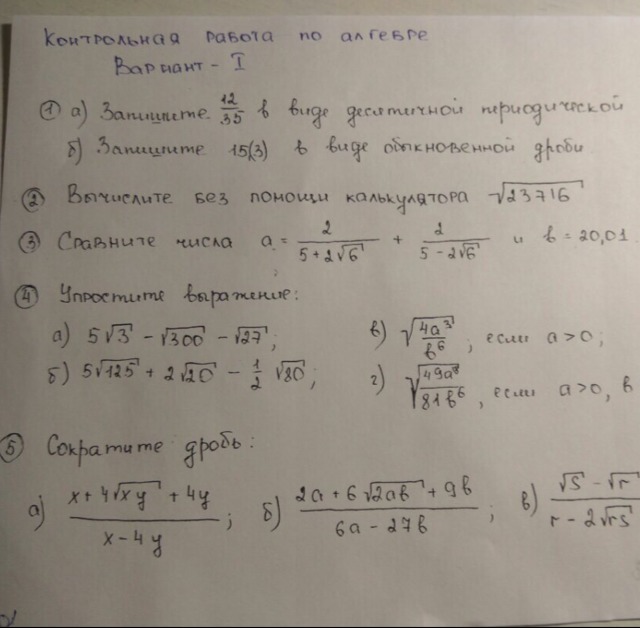 Контрольная работа по алгебре
Вариант - I
① а) Запишите 12/35 в виде десятичной периодической
б) Запишите 15,(3) в виде обыкновенной дроби
② Вычислите без помощи калькулятора √23716
③ Сравните числа a = 2/(5+2√6) + 2/(5-2√6) и b = 20,01.
④ Упростите выражение:
а) 5√3 - √300 - √27; в) √(4a³/b⁶), если a>0;
б) 5√125 + 2√20 - 1/2 √80; г) √(49a⁸/81b⁶), если a>0, b
⑤ Сократите дробь:
а) (x+4√xy+4y)/(x-4y); б) (2a+6√2ab+9b)/(6a-27b); в) (√s-√r)/(r-2√rs